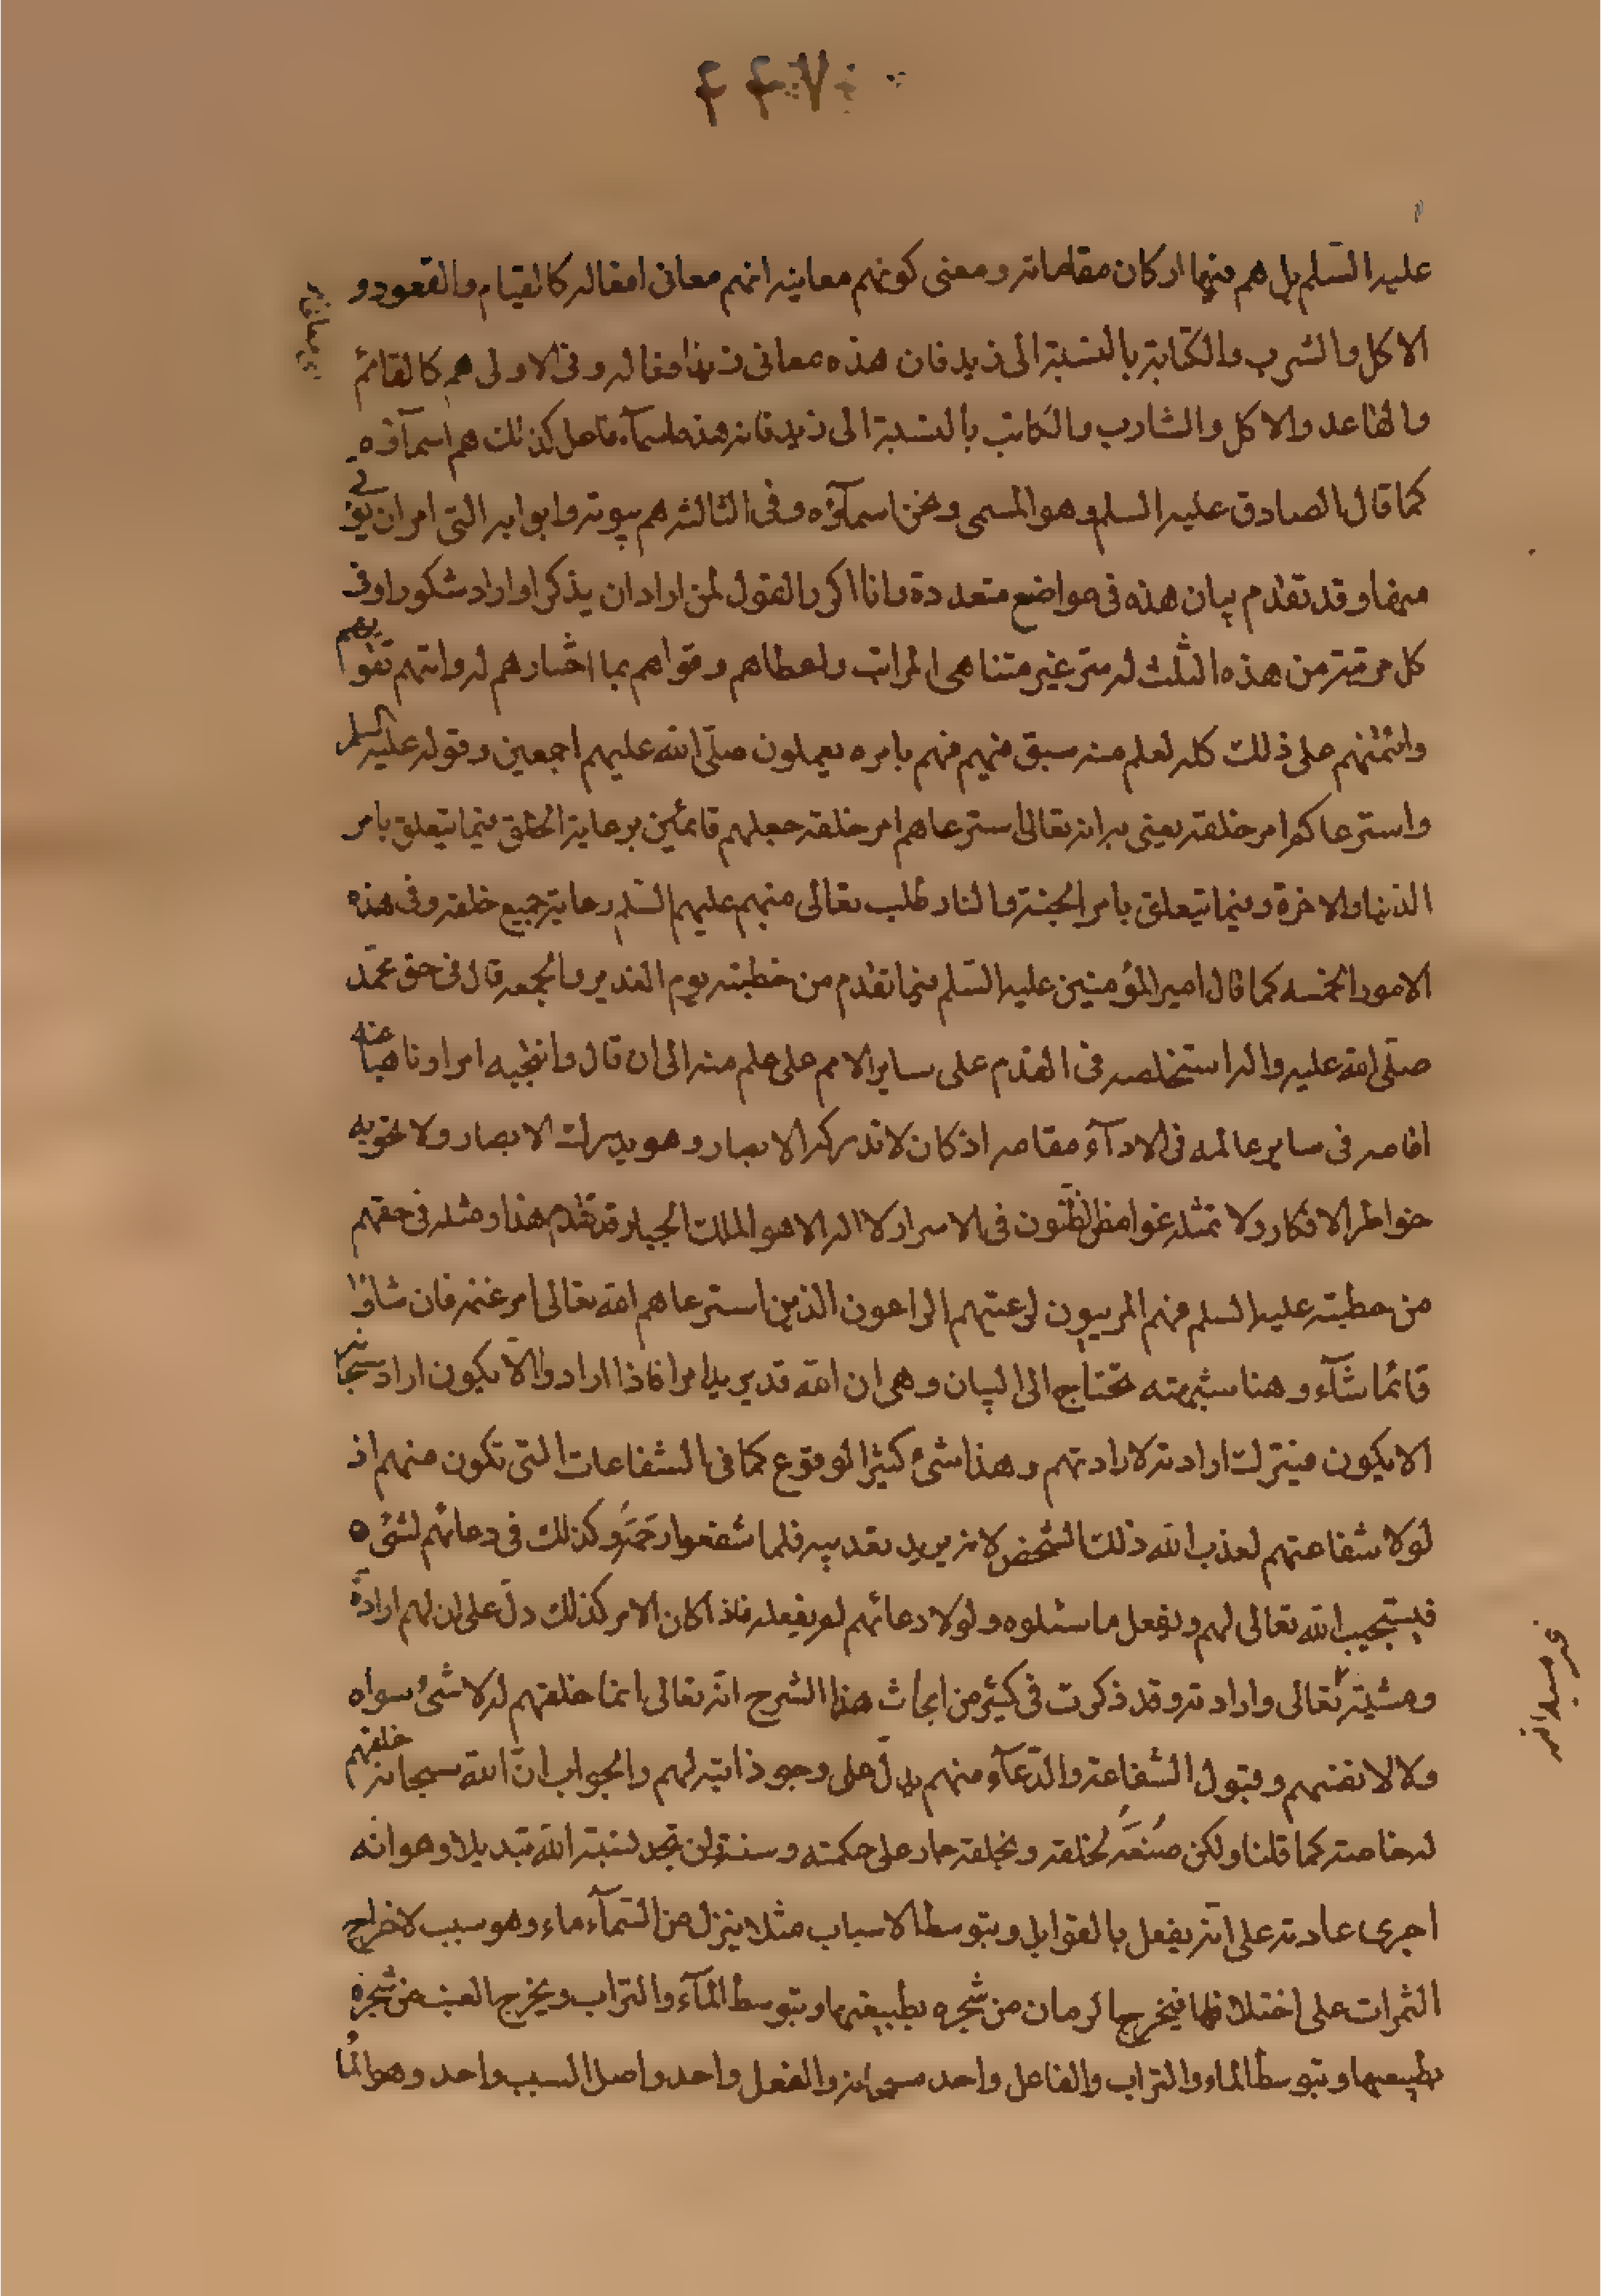 ۴۴۷
عليه السّلم بل هم فيها اركان مقاماته ومعنى كونهم معانيه انهم معانى افعاله كالقيام والقعود و
الاكل والشرب والكتابة بالنسبة الى زيد فان هذه معانى زيد افعاله وفى الاولى هم كالقائم
والقاعد والاكل والشارب والكاتب بالنسبة الى زيد فان هذه اسمآء فاعل كذلك هم اسمآؤه
كما قال الصادق عليه السلم وهو المسمى ونحن اسمآؤه وفى الثالثة هم بيوته وابوابه التى امر ان يؤتى
منها وقد تقدم بيان هذه فى مواضع متعددة وانا اكرر القول لمن اراد ان يذكر او اراد شكورا وفى
كل مرتبة من هذه الثلث له سر غير متناهى المراتب واعطاهم وقواهم بما اختارهم له واتيهم تقواهم
وائتمنهم على ذلك كله لعلم منه سبق فيهم فهم بامره يعملون صلّى الله عليهم اجمعين وقوله عليه السلم
واسترعاكم امر خلقه يعنى به انه تعالى استرعاهم امر خلقه جعلهم قائمين برعاية الخلق فيما يتعلق بامر
الدنيا والاخرة وفيما يتعلق بامر الجنة والنار طلب تعالى منهم عليهم السّلم رعاية جميع خلقه وفى هذه
الامور الخمسه كما قال امير المؤمنين عليه السّلم فيما تقدم من خطبته يوم الغدير والجمعه قال فى حق محمّد
صلّى الله عليه واله استخلصه فى القدم على ساير الامم على علم منه الى ان قال وانتجبه امرا وناهيا عنه
اقامه فى ساير عالمه فى الادآء مقامه اذ كان لا تدركه الابصار وهو يدرك الابصار ولا تحويه
خواطر الافكار ولا تمثله غوامض الظّنون فى الاسرار لا اله الا هو الملك الجبار وقد تقدم هذا ومثله فى حقهم
من خطبته عليه السلم فهم المربيون لرعيتهم الراعون الذين استرعاهم الله تعالى امر غنمه فان شاؤا
فانما شآء وهنا شبهته تحتاج الى البيان وهى ان الله قد يريد امرا فاذا ارادوا الّا يكون اراد سبحانه
الا يكون فيترك ارادته لارادتهم وهذا شئ كثير الوقوع كما فى الشفاعات التى تكون منهم اذ
لولا شفاعتهم لعذب الله ذلك الشخص لانه يريد تعذيبه فلما شفعوا رَحمَهُ وكذلك فى دعائهم لشئ
فيستجيب الله تعالى لهم ويفعل ما سئلوه ولولا دعائهم لم يفعله فاذا كان الامر كذلك دلّ على ان لهم ارادةً
ومشيّته تعالى وارادته وقد ذكرت فى كثير من ابحاث هذا الشرح انه تعالى انما خلقهم له لا شئ سواه
ولا لانفسهم وقبول الشفاعة والدّعآء منهم يدلّ على وجود ذاتية لهم والجواب انّ الله سبحانه خلقهم
له خاصة كما قلنا ولكن صُنعَهُ لخلقه وبخلقه جار على حكمته وسنته ولن تجد لسنة الله تبديلا وهو انه
اجرى عادته على انّه يفعل بالقوابل وبتوسط الاسباب مثلا ينزل من السّمآء ماء وهو سبب لاخراج
الثمرات على اختلافها فيخرج الرمان من شجره بطبيعتها وبتوسط المآء والتراب ويخرج العنب من شجره
بطبيعتها وبتوسط الماء والتراب والفاعل واحد سبحانه والفعل واحد واصل السبب واحد وهو المآ